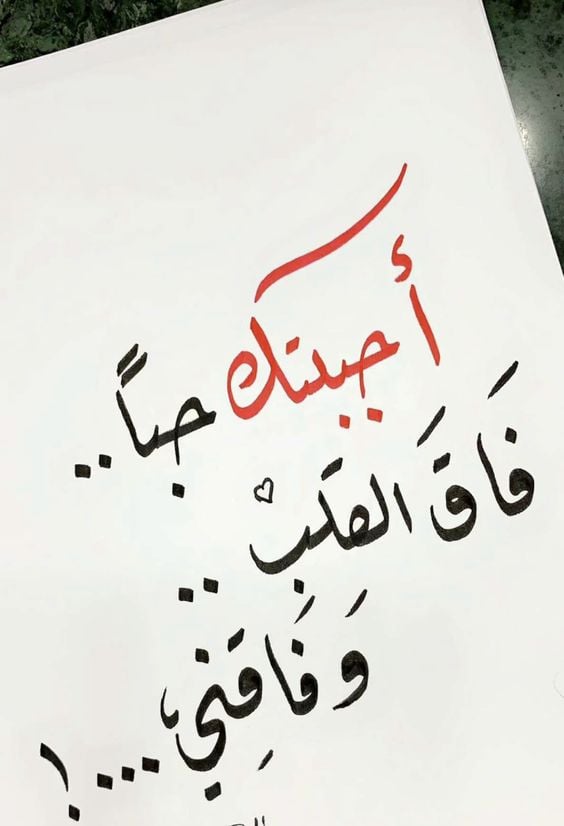 أحببتك حباً..
فَاقَ القَلب ♡ ..
وَفَاقِني، ...!